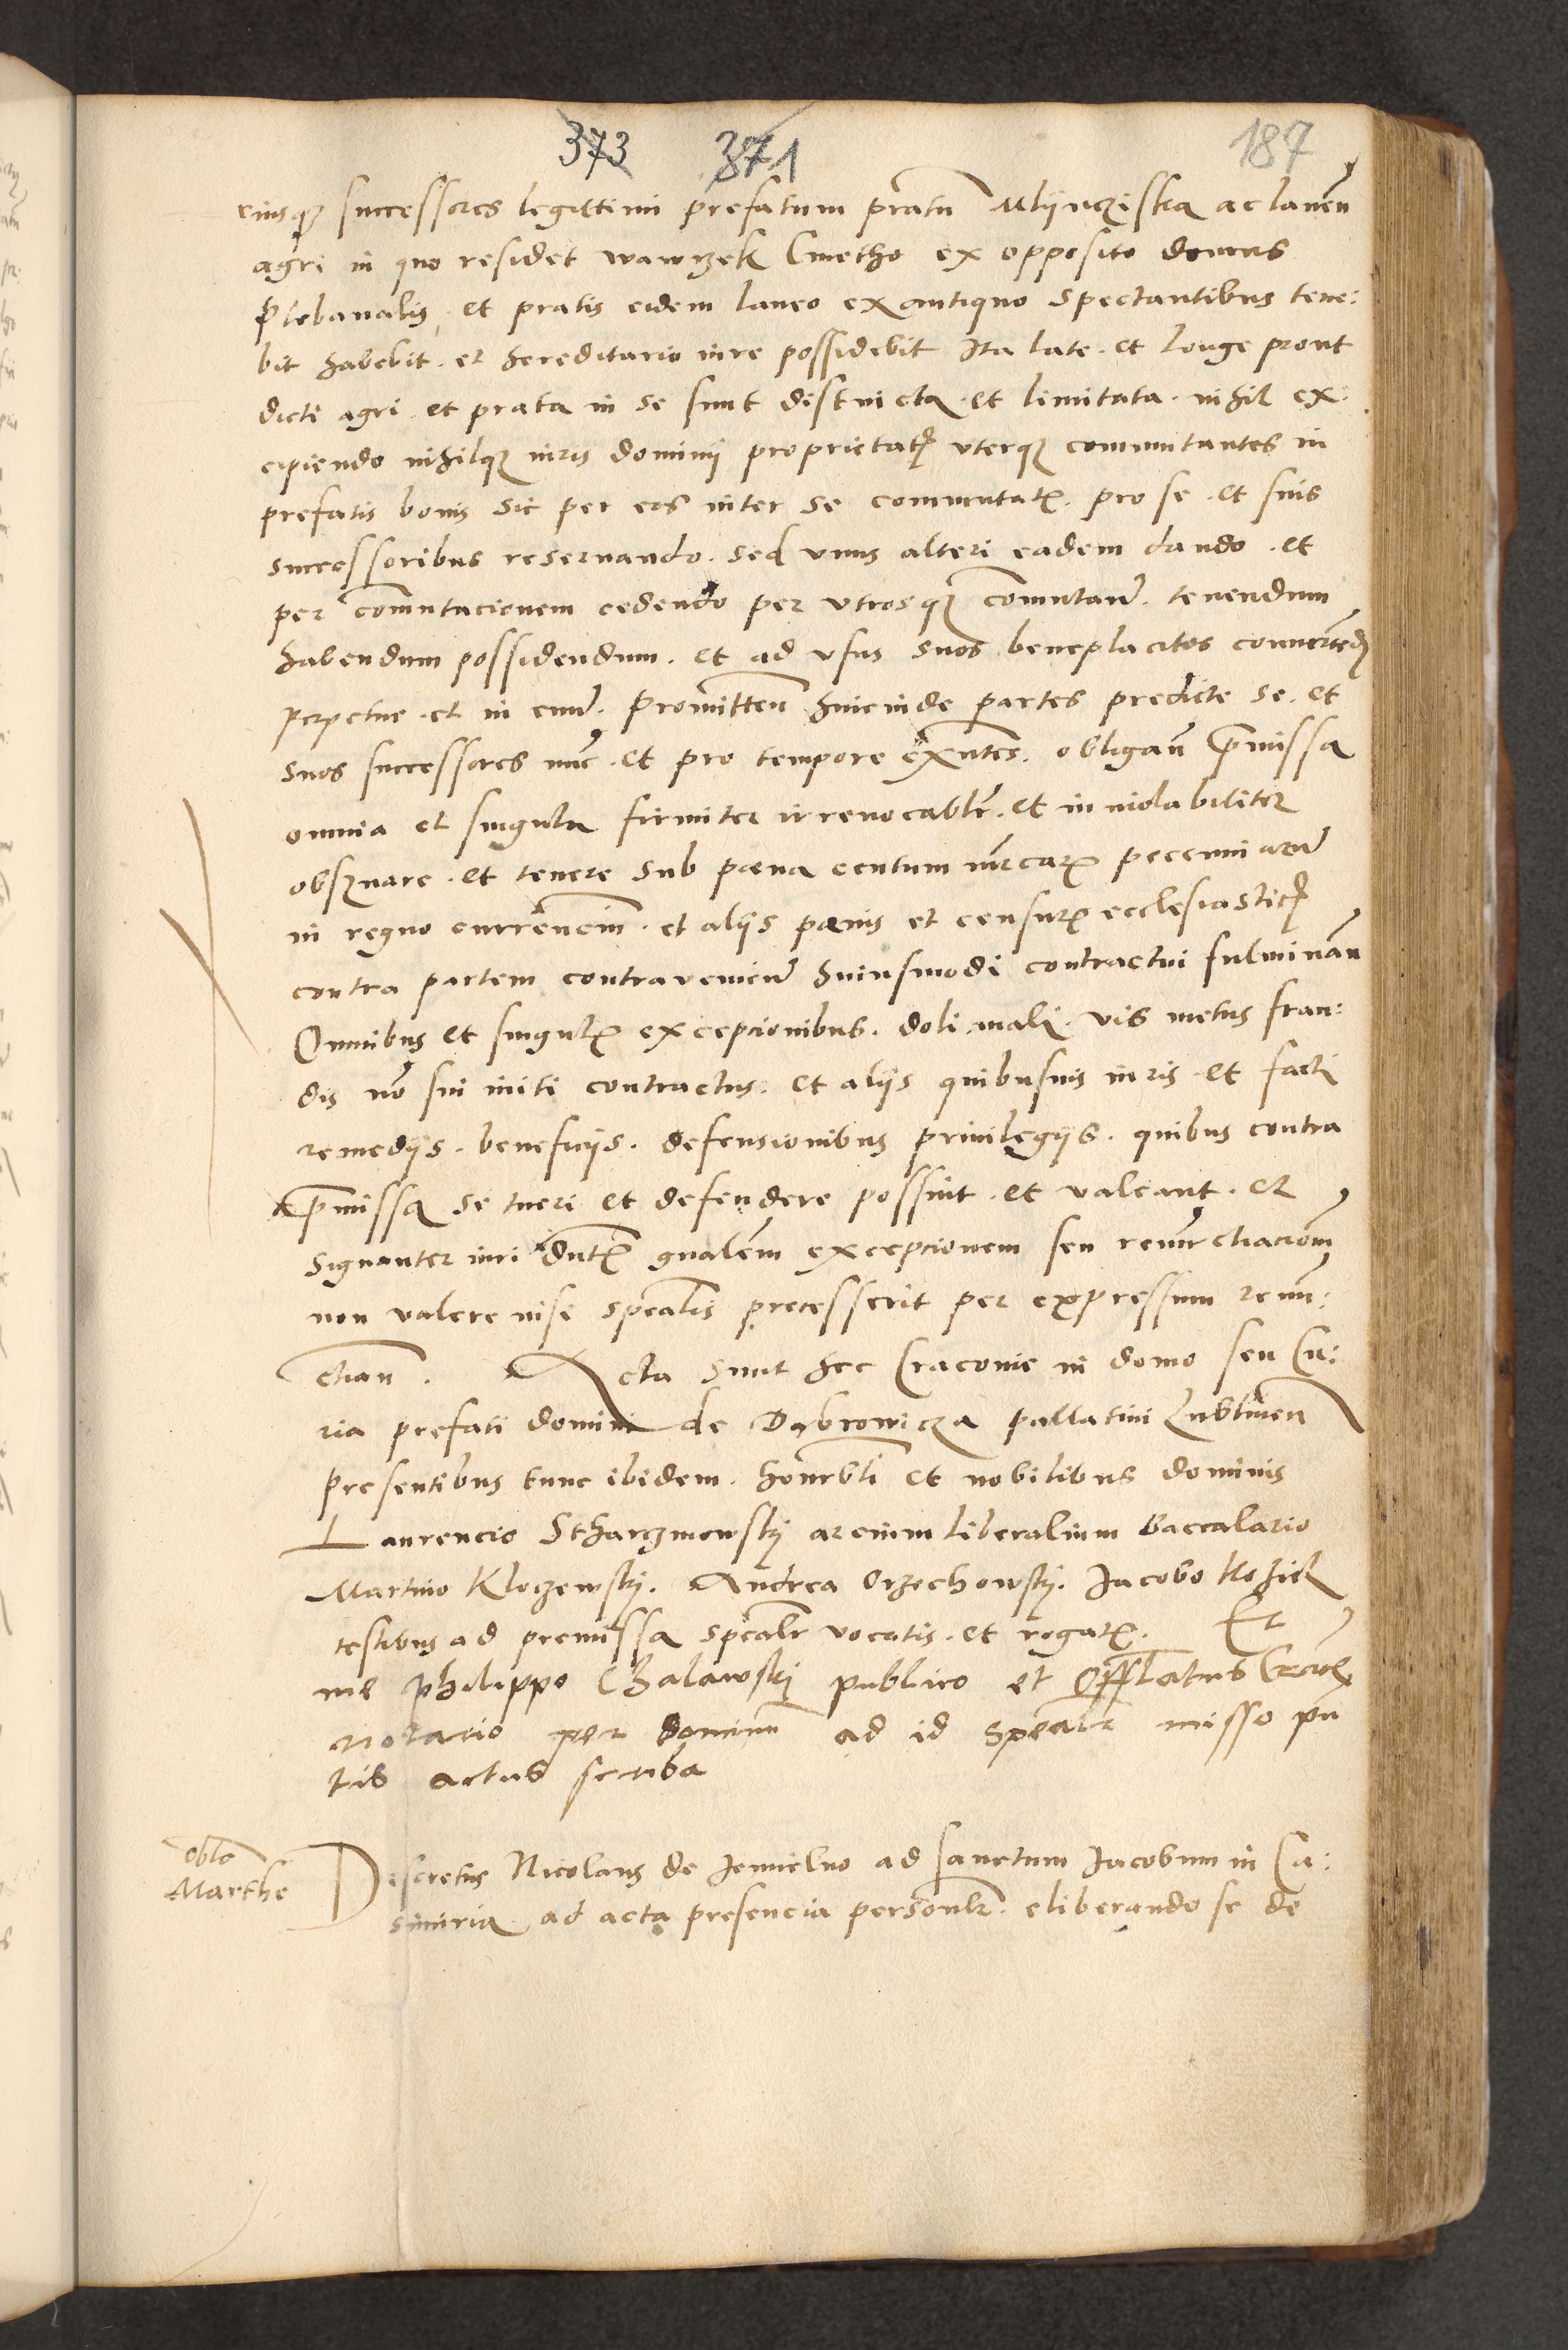 373 371 187
eiusq successores legittimi prefatum pratu Mlijnczijska ac laneu
agri in quo residet wawrzek Cmetho ex opposito domus
Plebanalis, et pratis eidem laneo ex antiquo spectantibus tene:
bit habebit. et hereditario iure possidebit Ita late. et longe prout
dicti agri. et prata in se sunt distincta. et limitata. nihil ex:
cipiendo nihilq iuris dominij proprietatis uterq commutantes in
prefatis bonis sic per eos inter se commutatis. pro se. et suis
successoribus reseruando. sed unus alteri eadem dando. et
per comutacionem cedendo per utrosq comutan. tenendum
habendum possidendum. et ad usus suos beneplacitos conuertend
perpetue. et in euu. Promitten hincinde partes predicte se. et
suos successores nuc. et pro tempore exntes. obligan pmissa
omnia et singula firmiter irreuocablr. et inuiolabiliter
obsuare. et tenere sub pena centum mrcar pecuniaru
in regno currencium. et alijs penis et censuris ecclesiasticis
contra partem contrauenien huiusmodi contractui fulminan
Omnibus et singulis excepcionibus. doli mali. vis metus frau:
dis no sui initi contractus. et alijs quibusuis iuris. et facti
remedijs. beneficijs. defensionibus priuilegijs. quibus contra
pmissa se tueri et defendere possint. et valeant. et
signanter iuri dicenti gnalem excepcionem seu renunctiacionem
non valere nisi specalis precesserit per expressum renun:
ctian. Acta sunt hec Cracouie in domo seu Cu:
ria prefati domini de Dabrowicza pallatini Lublinen
presentibus tunc ibidem. honorabli et nobilibus dominis
Laurencio Stharzmowskij arcium liberalium baccalario
Martino Kloczewskij. Andrea Orzechowskij. Jacobo Kozick
testibus ad premissa specalr vocatis. et rogatis. Et
me Philippo Chalawskij publico et Offlatus Cracou
notario per dominu ad id specalr misso pn
tis actus scriba
oblo
Marthe
Discretus Nicolaus de Jemielno ad sanctum Jacobum in Ca:
simiria. ad acta presencia personlr. eliberando se de